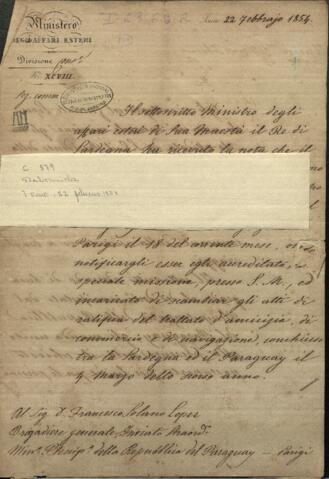 Ministero
DEGLI AFFARI ESTERI
Divisione
N.° XCVIII.
22 Febbrajo 1854.
Il sottoscritto Ministro degli
affari esteri di Sua Maestà il Re di
Sardegna ha ricevuto la nota che il
C 879
22 1854
Parigi il 18 del corrente mese,
notificargli esser egli accreditato,
speciale missione, presso S. M., ed
incaricato di scambiar gli atti di
ratifica del trattato d'amicizia, di
commercio e di navigazione, conchiuso
tra la Sardegna ed il Paraguay il
4 Marzo dello scorso anno.
Al Sig. D. Francesco Solano Lopez
Brigadiere generale, Inviato Straord.
Min. Plenip. della Repubblica del Paraguay — Parigi